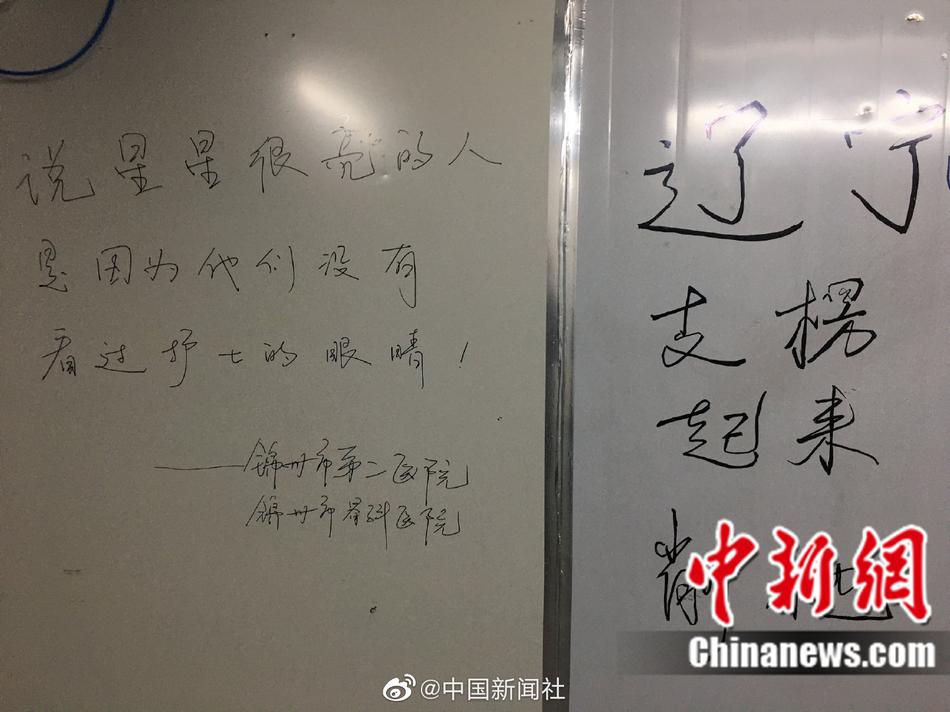 说星星很亮的人
是因为他们没有
看过护士的眼睛！
——锦州市第二医院
锦州市骨科医院
辽宁
支楞
起来
中新網
Chinanews.com
@中国新闻社